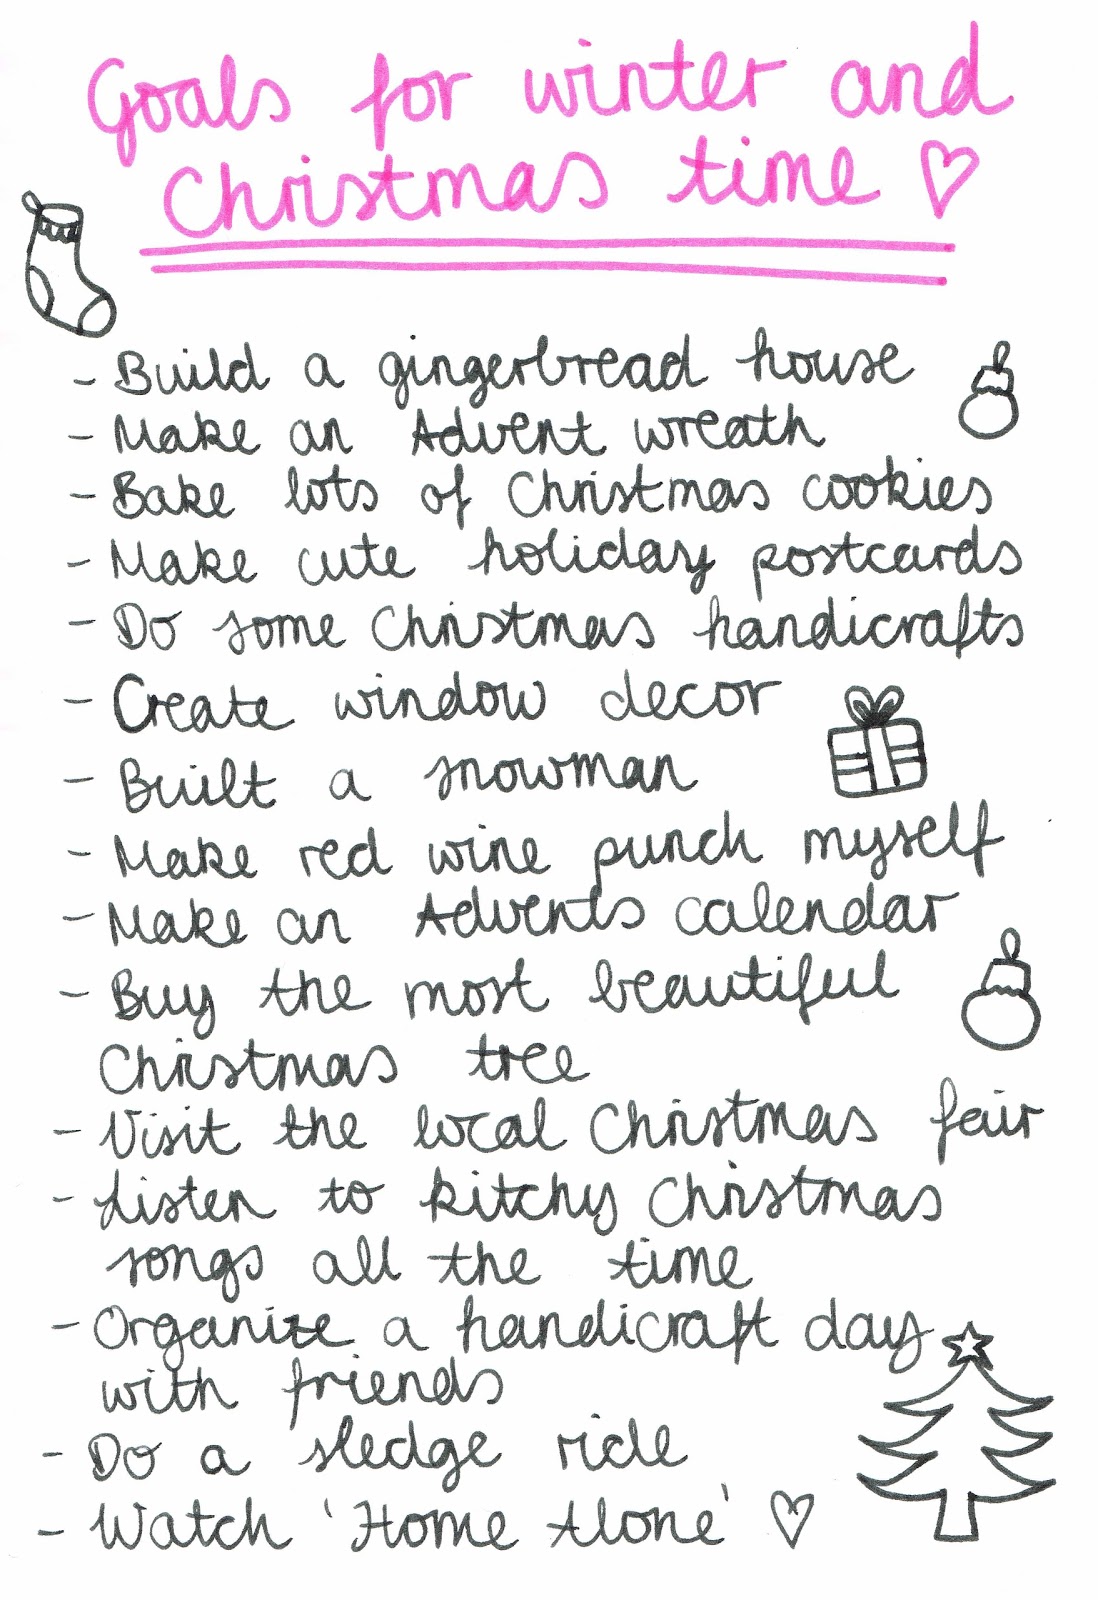 Goals for winter and
Christmas time ♡
- Build a gingerbread house
- Make an Advent wreath
- Bake lots of Christmas cookies
- Make cute holiday postcards
- Do some Christmas handicrafts
- Create window decor
- Built a snowman
- Make red wine punch myself
- Make an Advents calendar
- Buy the most beautiful
Christmas tree
- Visit the local Christmas fair
- Listen to kitchy Christmas
songs all the time
- Organize a handicraft day
with friends
- Do a sledge ride
- Watch 'Home Alone' ♡